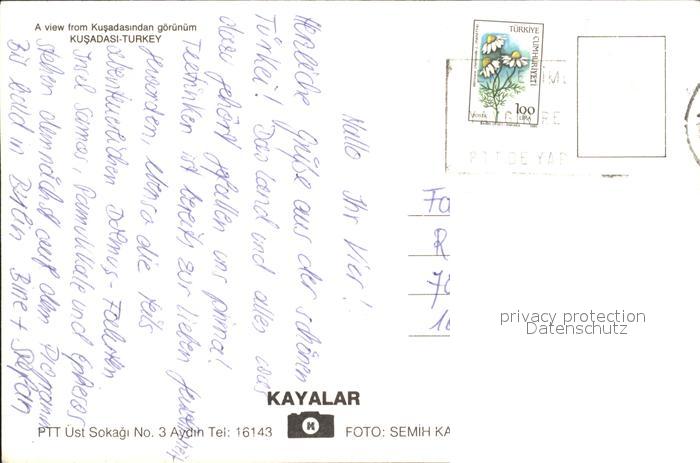 A view from Kuşadasından görünüm
KUŞADASI-TURKEY
TÜRKİYE CUMHURİYETİ
100
LİRA
POSTA
PTT DE YAP
Hallo Ihr Vier!
Herzliche Grüße aus der schönen
Türkei! Das Land und alles was
dazu gehört gefallen uns prima!
Teetrinken ist bereits zur lieben
geworden, ebenso die teils
abenteuerlichen Dolmuş-Fahrten.
Insel Samos, Pamukkale und
stehen demnächst auf dem Programm
Bis bald in Berlin Bine + Stefan
Fa
R
70
10
privacy protection
Datenschutz
KAYALAR
PTT Üst Sokağı No. 3 Aydın Tel: 16143
FOTO: SEMİH KA